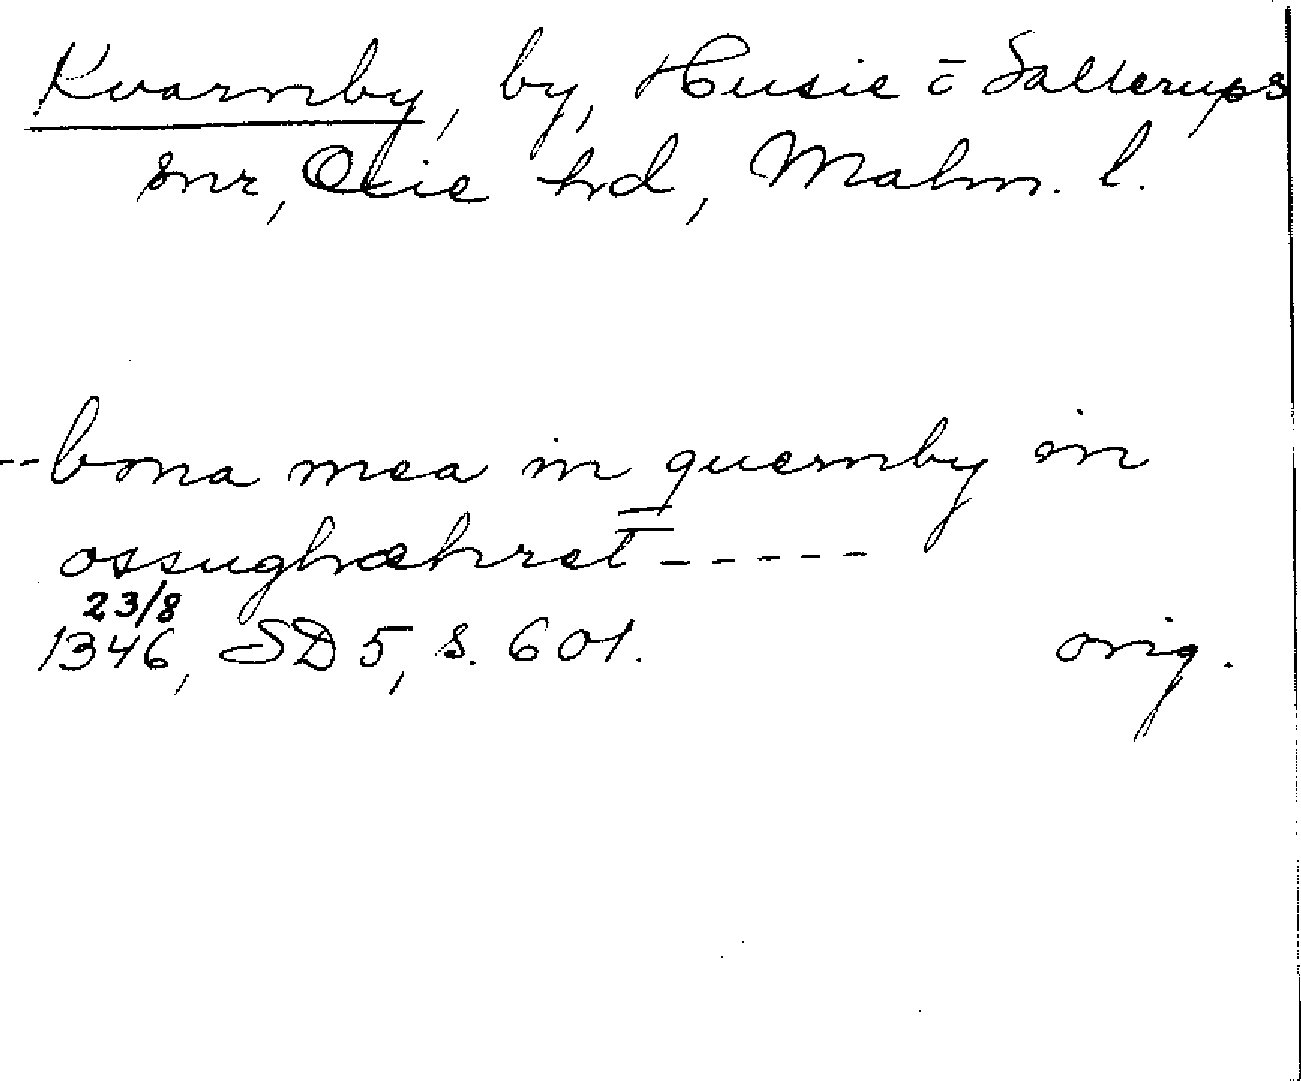 Kvarnby, by, Husie o Sallerups
snr, Oxie hd, Malm. l.
--bona mea in quernby in
ossughæhret-----
23/8
1346, SD 5, s. 601. orig.